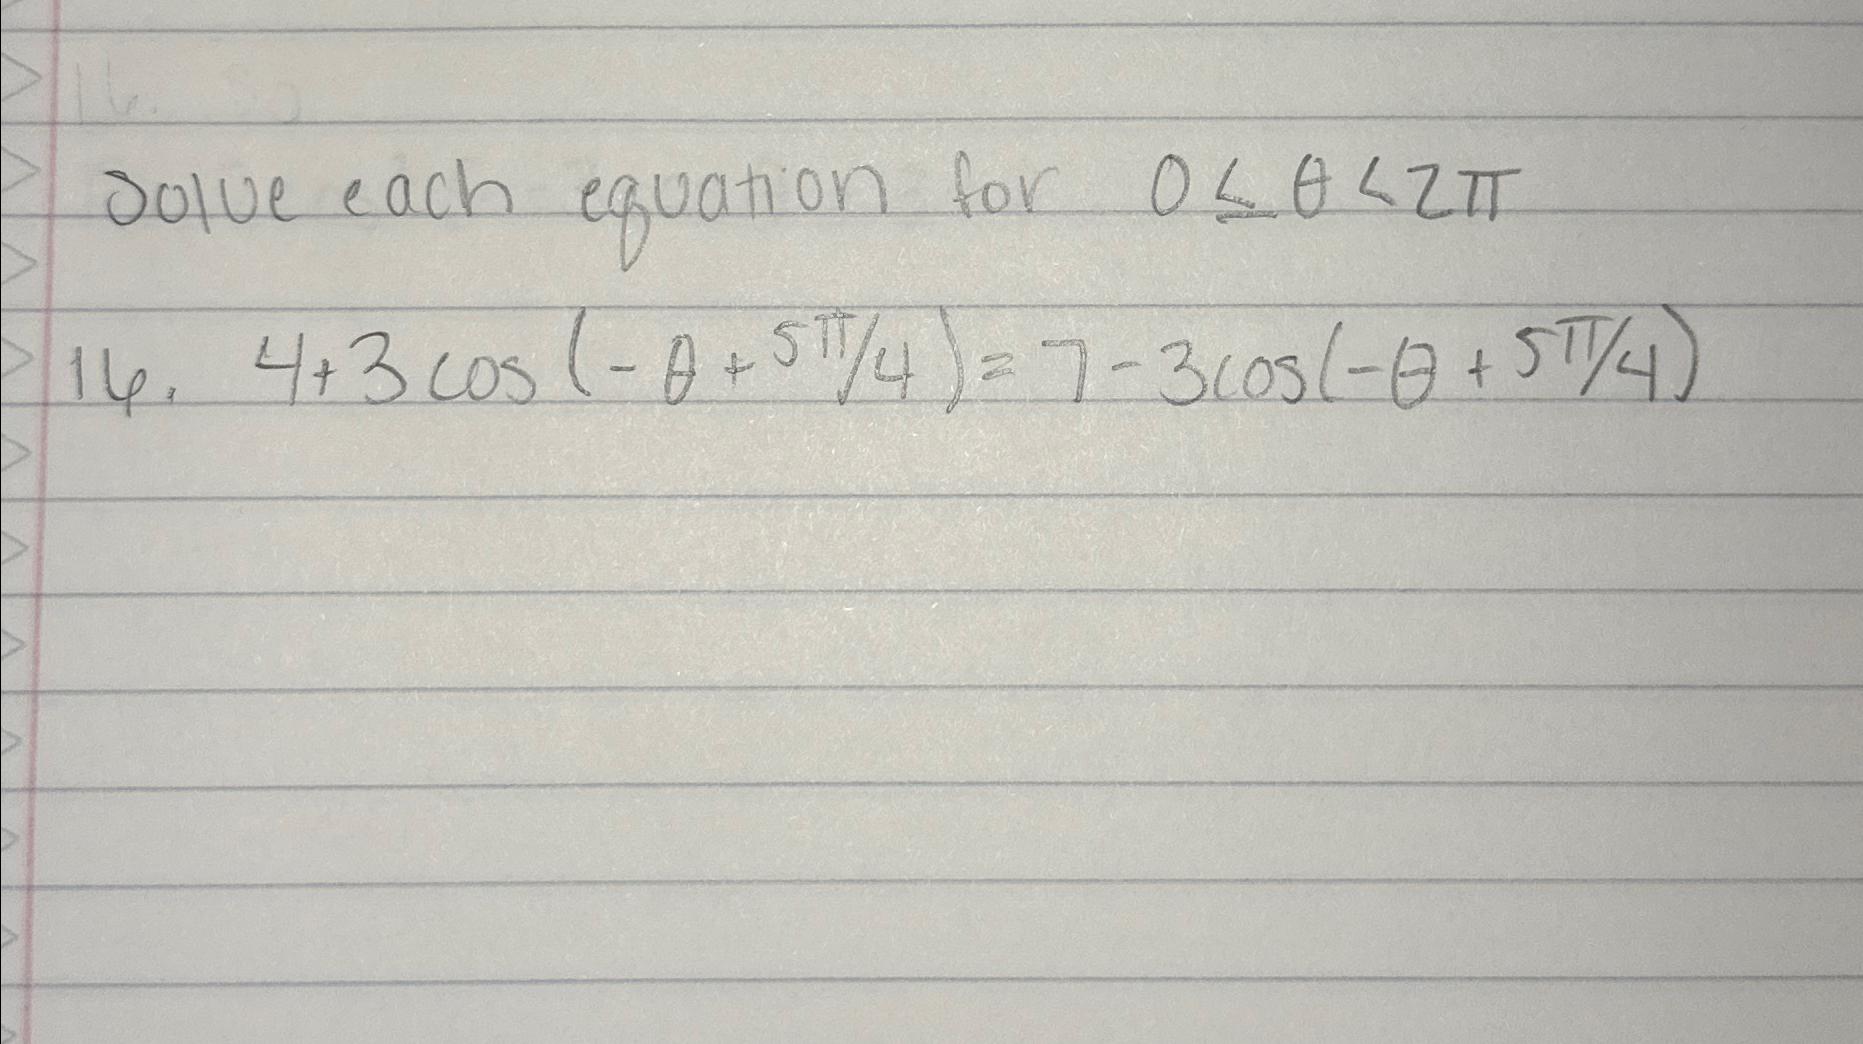 16.
Solve each equation for 0 ≤ θ < 2π
16. 4+3cos(-θ+5π/4)=7-3cos(-θ+5π/4)